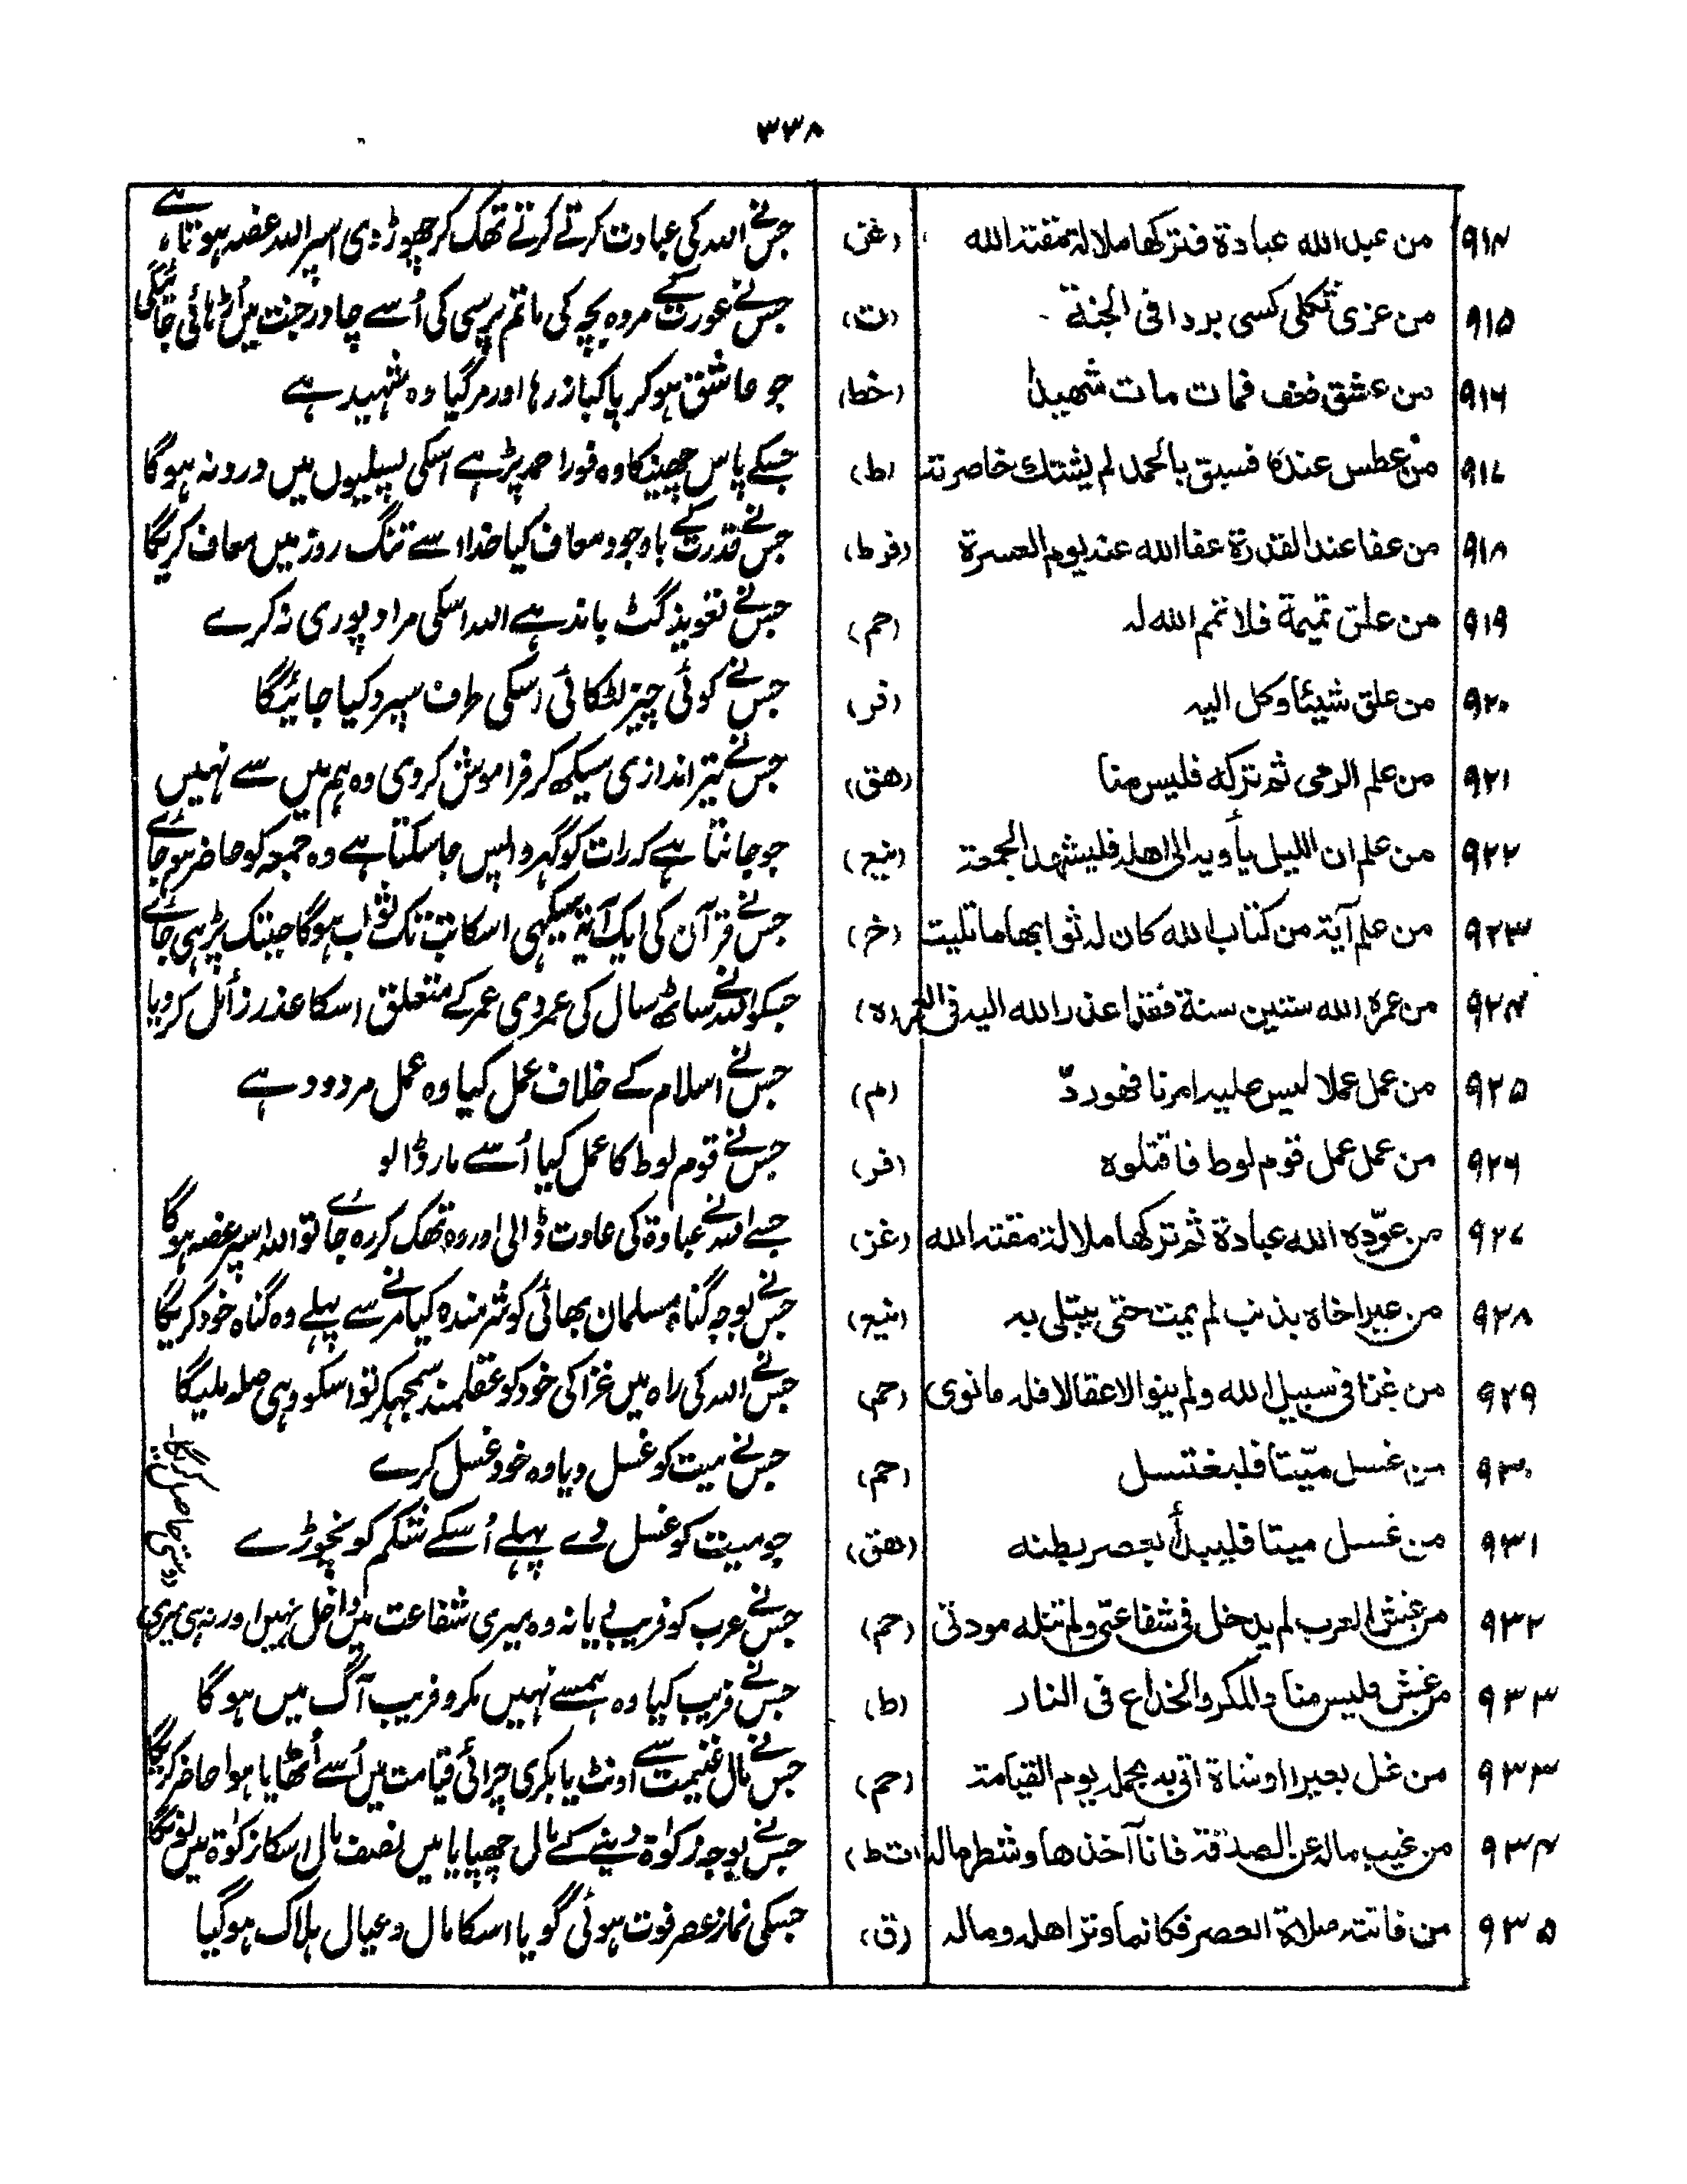 ۳۳۸
۹۱۴ من عبد الله عبادة فتركها ملالة مقته الله (غز) جس نے اللہ کی عبادت کرتے کرتے تھک کر چھوڑ دی اسپر اللہ غضہ ہوتا ہے
۹۱۵ من عزى ثكلى كسى بردا فى الجنة (ت) جس نے عورت کے مردہ بچہ کی ماتم پرسی کی اُسے چادر جنت میں اُڑہائی جائیگی
۹۱۶ من عشق فعف فمات مات شهيدا (خط) جو عاشق ہو کر پاکباز رہا اور مر گیا وہ شہید ہے
۹۱۷ من عطس عنده فسبق بالحمد لم يشتك خاصرته (ط) جسکے پاس چھینکا وہ فورا حمد پڑہے اسکی پسلیوں میں درد نہ ہوگا
۹۱۸ من عفا عند القدرة عفا الله عند يوم العسرة (فرط) جس نے قدرت کے باوجود معاف کیا خدا اسے تنگ روز میں معاف کریگا
۹۱۹ من علق تميمة فلا تمم الله له (حم) جس نے تعویذ گٹ باندہے اللہ اسکی مراد پوری نہ کرے
۹۲۰ من علق شيئا وكل اليه (فر) جس نے کوئی چیز لٹکائی اسکی طرف سپرد کیا جائیگا
۹۲۱ من علم الرمى ثم تركه فليس منا (هق) جس نے تیر اندازی سیکھ کر فراموش کردی وہ ہم میں سے نہیں
۹۲۲ من علم ان الليل يأويه الى اهله فليشهد الجمعة (نیع) جو جانتا ہے کہ رات کو گہر واپس جا سکتا ہے وہ جمعہ کو حاضر ہو جائے
۹۲۳ من علم آية من كتاب الله كان له ثوابها ما تليت (خر) جس نے قرآن کی ایک آیۃ سیکہی اسکا تب تک ثواب ہوگا جبتک پڑہی جائے
۹۲۴ من عمره الله ستين سنة فقد اعذر الله اليه فى العمر (ه) جسکو اللہ نے ساٹھ سال کی عمر دی عمر کے متعلق اسکا عذر زائل کر دیا
۹۲۵ من عمل عملا ليس عليه امرنا فهو ردّ (م) جس نے اسلام کے خلاف عمل کیا وہ عمل مردود ہے
۹۲۶ من عمل عمل قوم لوط فاقتلوه (فر) جس نے قوم لوط کا عمل کیا اُسے مار ڈالو
۹۲۷ من عوّده الله عبادة ثم تركها ملالة مقته الله (غز) جسے اللہ نے عبادۃ کی عادت ڈالی اور وہ تھک کر رہ جائے تو اللہ اسپر غضہ ہوگا
۹۲۸ من عير اخاه بذنب لم يمت حتى يبتلى به (نیع) جس نے بوجہ گناہ مسلمان بھائی کو شرمندہ کیا مرنے سے پہلے وہ گناہ خود کریگا
۹۲۹ من غزا فى سبيل الله ولم ينو الا عقالا فله مانوى (حم) جس نے اللہ کی راہ میں غزا کی خود کو عقلمند سمجہکر تو اسکو وہی صلہ ملیگا
۹۳۰ من غسل ميّتا فليغتسل (حم) جس نے میت کو غسل دیا وہ خود غسل کرے
۹۳۱ من غسل ميتا فليبدأ بعصر بطنه (هق) جو میت کو غسل دے پہلے اُسکے شکم کو نچوڑے
۹۳۲ من غش العرب لم يدخل فى شفاعتى ولم تنله مودتى (حم) جس نے عرب کو فریب دیا نہ وہ میری شفاعت میں داخل نہیں اور نہ ہی میری
دوستی حاصل کریگا
۹۳۳ من غش فليس منا والمكر والخداع فى النار (ط) جس نے فریب کیا وہ ہمسے نہیں مکر و فریب آگ میں ہوگا
۹۳۳ من غل بعيرا او شاة اتى به يحمله يوم القيامة (حم) جس نے مال غنیمت سے اونٹ یا بکری چرائی قیامت میں اُسے اُٹھایا ہوا حاضر کریگا
۹۳۴ من غيب ماله عن الصدقة فانا آخذها وشطر ماله (قط) جس نے بوجہ زکوٰۃ دینے کے مال چھپایا میں نصف مال اسکا زکوٰۃ میں لونگا
۹۳۵ من فاتته صلاة العصر فكانما وتر اهله وماله (ق) جسکی نماز عصر فوت ہوئی گویا اسکا مال و عیال ہلاک ہو گیا